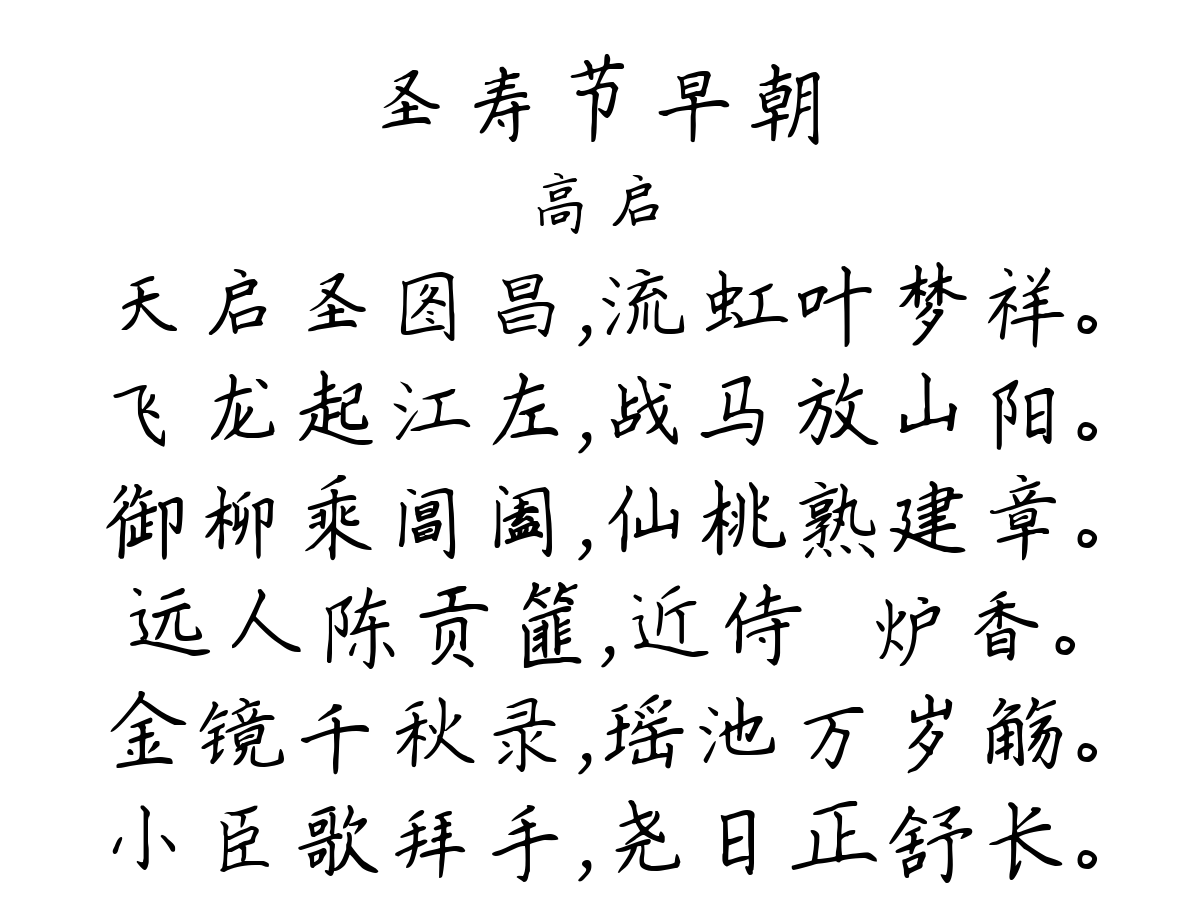 圣寿节早朝
高启
天启圣图昌,流虹叶梦祥。
飞龙起江左,战马放山阳。
御柳乘阊阖,仙桃熟建章。
远人陈贡篚,近侍 炉香。
金镜千秋录,瑶池万岁觞。
小臣歌拜手,尧日正舒长。